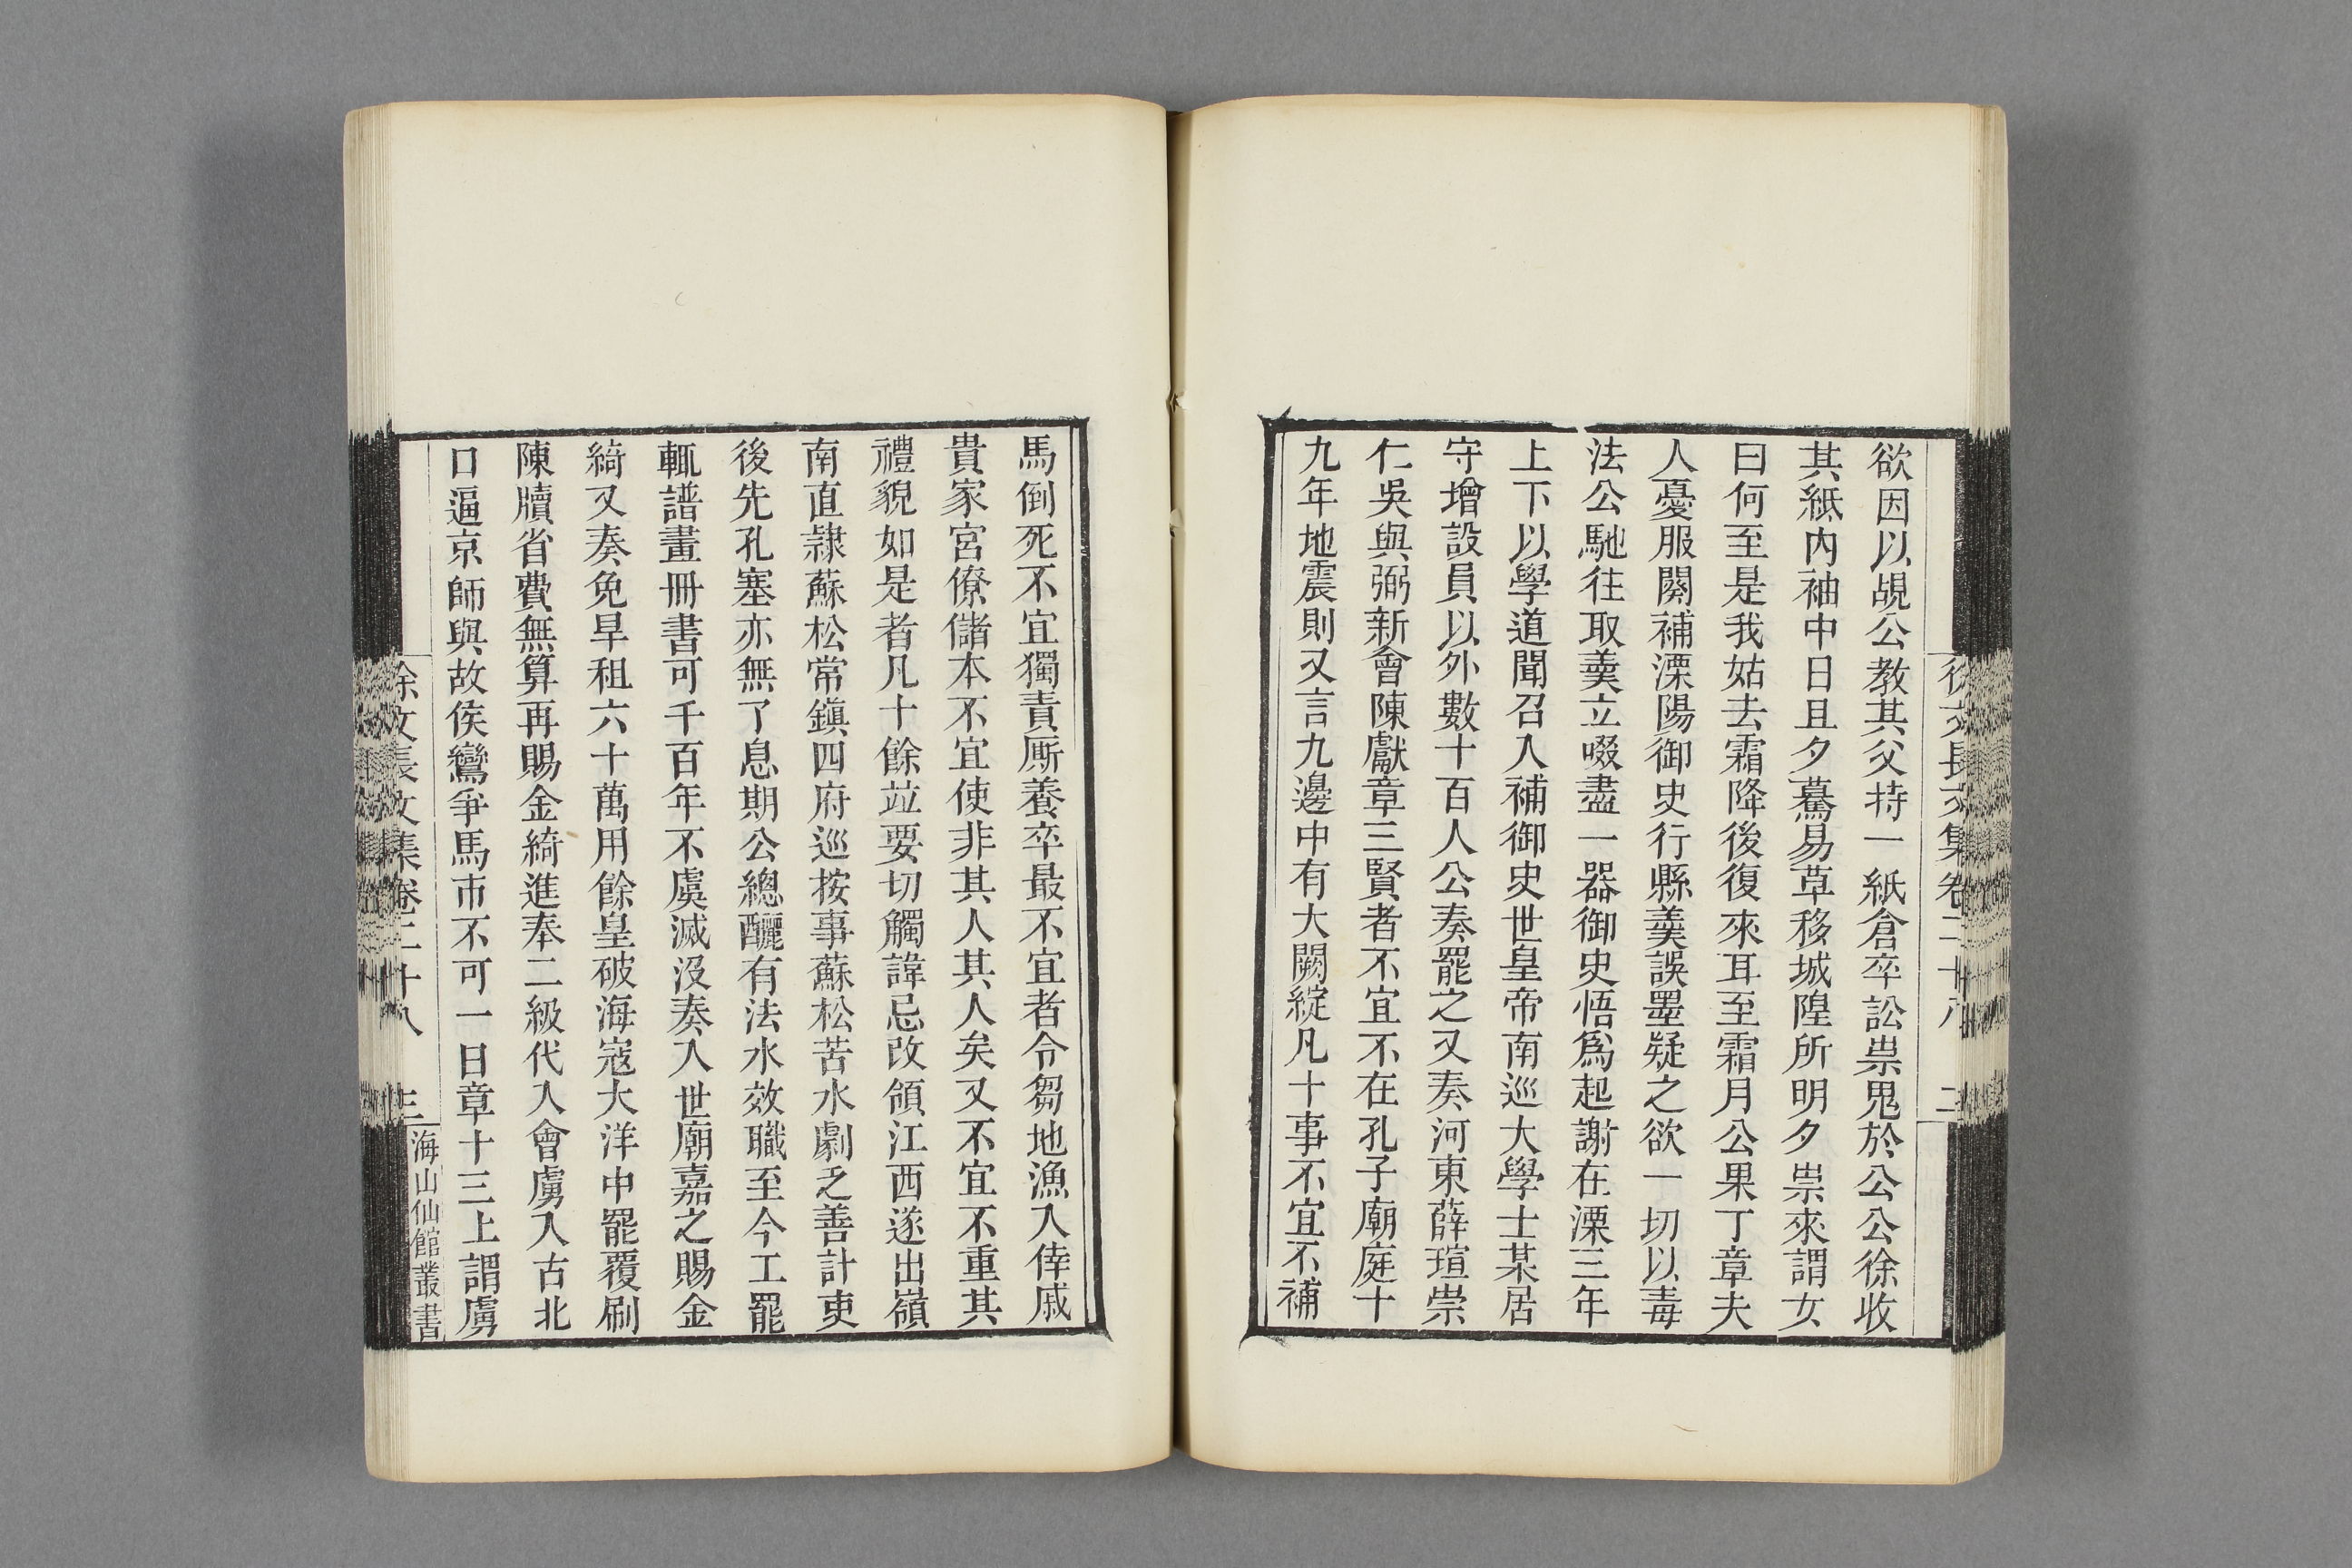 欲因以覘公教其父持一紙倉卒訟祟鬼於公公徐收
其紙內袖中日且夕驀易草移城隍所明夕祟來謂女
曰何至是我姑去霜降後復來耳至霜月公果丁章夫
人憂服闋補溧陽御史行縣羹誤墨疑之欲一切以毒
法公馳往取羹立啜盡一器御史悟為起謝在溧三年
上下以學道聞召入補御史世皇帝南巡大學士某居
守增設員以外數十百人公奏罷之又奏河東薛瑄崇
仁吳與弼新會陳獻章三賢者不宜不在孔子廟庭十
九年地震則又言九邊中有大闕綻凡十事不宜不補
徐文長文集卷二十八 二
馬倒死不宜獨責厮養卒最不宜者令芻地漁入倖戚
貴家宮僚儲本不宜使非其人其人矣又不宜不重其
禮貌如是者凡十餘竝要切觸諱忌改領江西遂出嶺
南直隸蘇松常鎮四府巡按事蘇松苦水劇乏善計吏
後先孔塞亦無了息期公總釃有法水效職至今工罷
輒譜畫冊書可千百年不虞滅沒奏入世廟嘉之賜金
綺又奏免旱租六十萬用餘皇破海寇大洋中罷覆刷
陳牘省費無算再賜金綺進奉二級代入會虜入古北
口逼京師與故侯鸞爭馬市不可一日章十三上謂虜
徐文長文集卷二十八 三
海山仙館叢書